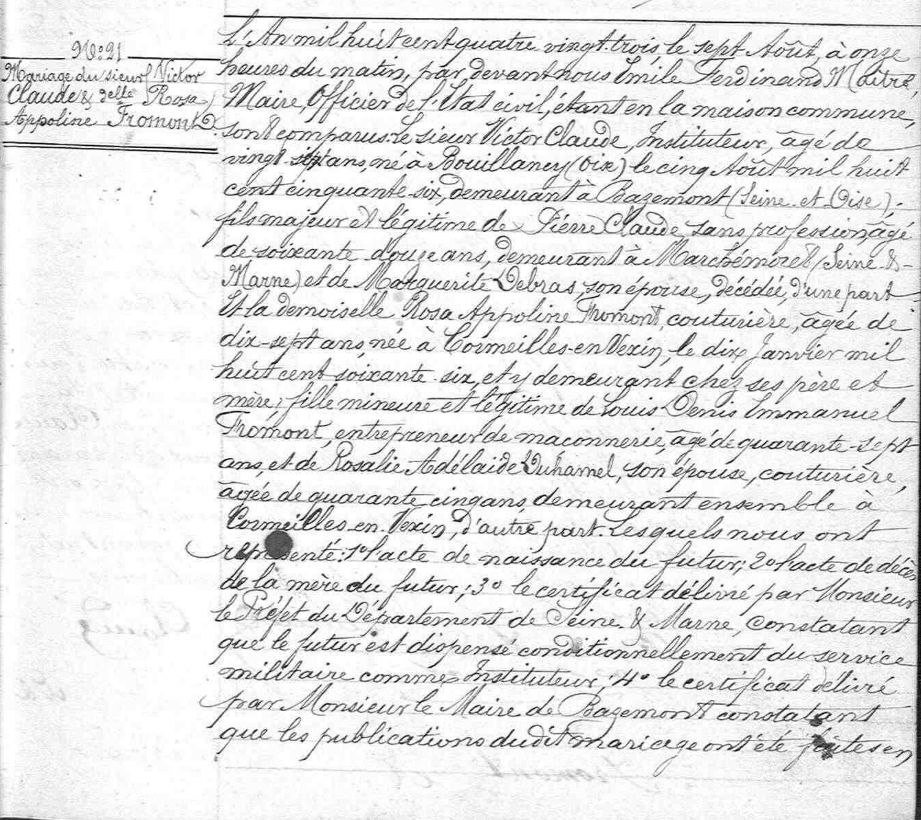 No: 21
Mariage du sieur Victor
Claude & delle Rosa
Appoline Fromont.
L'An mil huit cent quatre vingt trois, le sept Août, à onze
heures du matin, par devant nous Emile Ferdinand Maître,
Maire, Officier de l'Etat civil, étant en la maison commune,
sont comparus: le sieur Victor Claude, Instituteur, âgé de
vingt-sept ans, né à Bouillancy (Oise) le cinq Août mil huit
cent cinquante-six, demeurant à Bazemont (Seine-et-Oise).
fils majeur et légitime de Pierre Claude sans profession, âgé
de soixante-douze ans, demeurant à Marchémoret (Seine-&-
Marne) et de Marguerite Debras, son épouse, décédée, d'une part
Et la demoiselle Rosa Appoline Fromont, couturière, âgée de
dix-sept ans, née à Cormeilles-en-Vexin, le dix Janvier mil
huit cent soixante-six, et y demeurant chez ses père et
mère; fille mineure et légitime de Louis-Denis Emmanuel
Fromont, entrepreneur de maconnerie, âgé de quarante-sept
ans, et de Rosalie Adélaïde Duhamel, son épouse, couturière,
âgée de quarante-cinq ans, demeurant ensemble à
Cormeilles-en-Vexin, d'autre part. Lesquels nous ont
représenté: 1º l'acte de naissance du futur; 2º l'acte de décès
de la mère du futur; 3º le certificat délivré par Monsieur
le Préfet du Département de Seine-&-Marne, constatant
que le futur est dispensé conditionnellement du service
militaire comme Instituteur; 4º le certificat délivré
par Monsieur le Maire de Bazemont constatant
que les publications dudit mariage ont été faites en